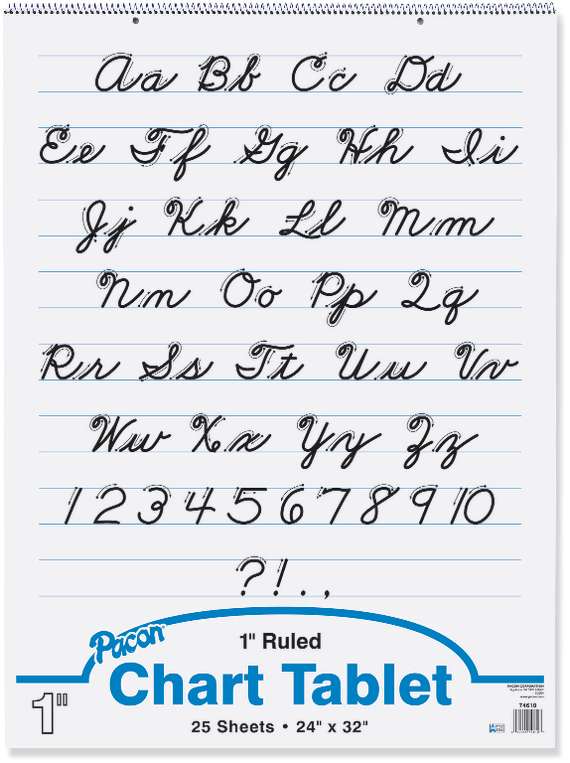 Aa Bb Cc Dd
Ee Ff Gg Hh Ii
Jj Kk Ll Mm
Nn Oo Pp Qq
Rr Ss Tt Uu Vv
Ww Xx Yy Zz
1 2 3 4 5 6 7 8 9 10
? ! . ,
Pacon
1" Ruled
Chart Tablet
1"
25 Sheets • 24" x 32"
74610